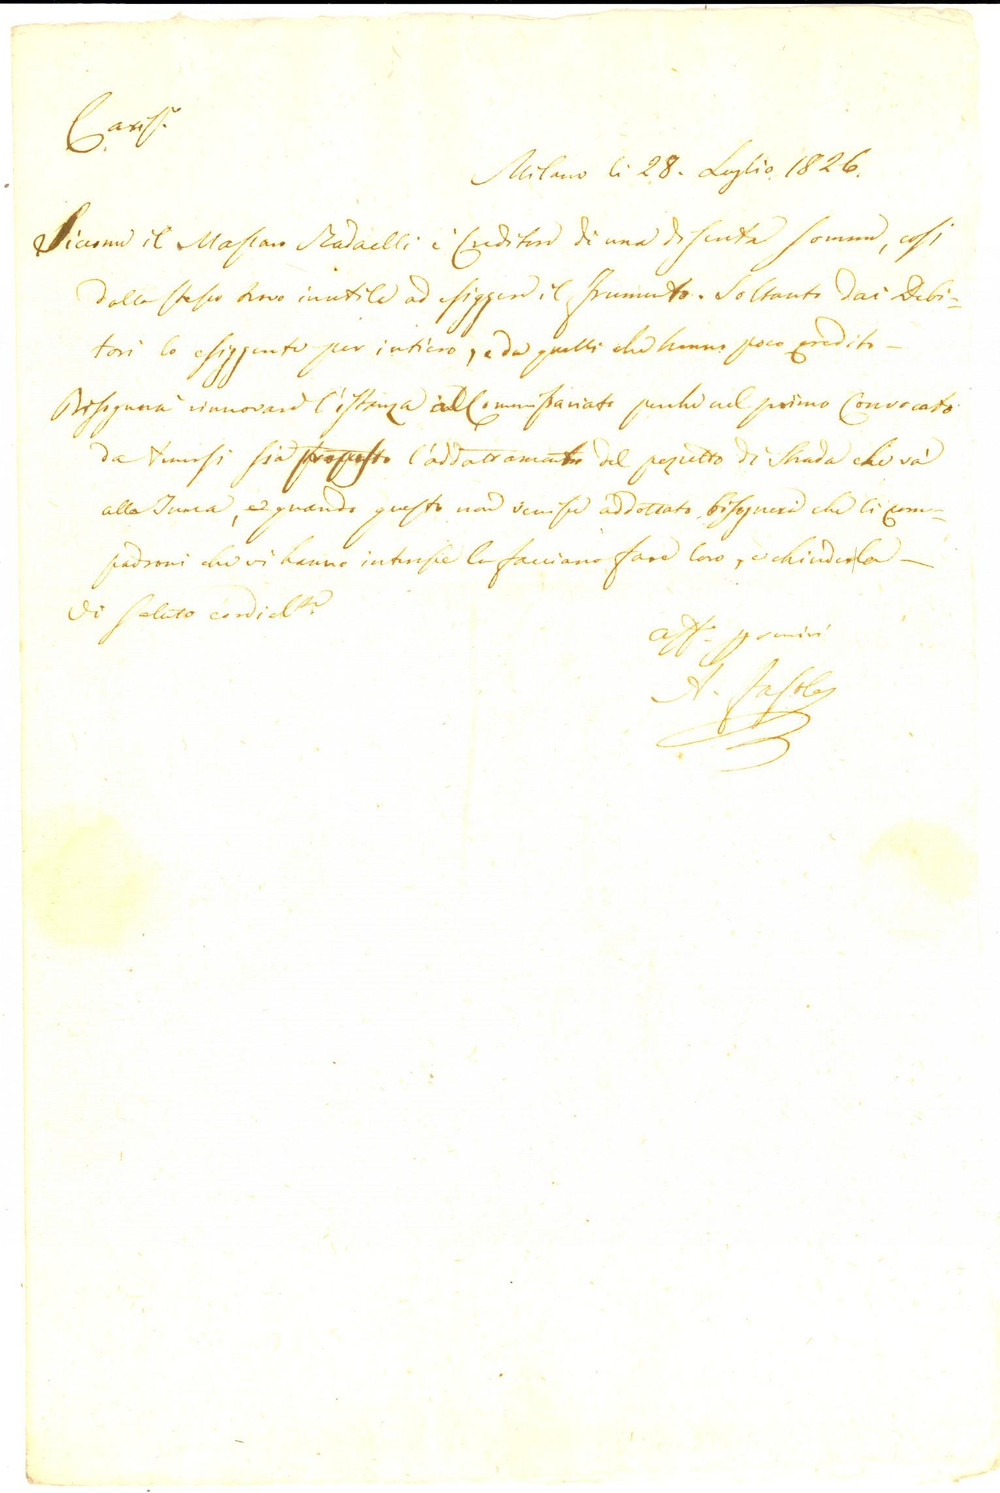 Cariss.º
Milano li 28. Luglio 1826.
Siccome il Massaro Radaelli è Creditore di una discreta somma, così
dallo stesso trovo inutile ad esiggere il frumento. Soltanto dai Debi-
tori lo esiggerete per intiero, e da quelli che hanno poco credito -
Bisognerà rinnovare l'istanza al Commissariato perchè nel primo Convocato
da tenersi sia proposto l'addattamento del pezzetto di Strada che và
alla, e quando questo non venisse addottato, bisognerà che li com-
padroni che vi hanno interesse la facciano fare loro, e chiuderla -
Vi saluto cordialte.
Aff.
A.